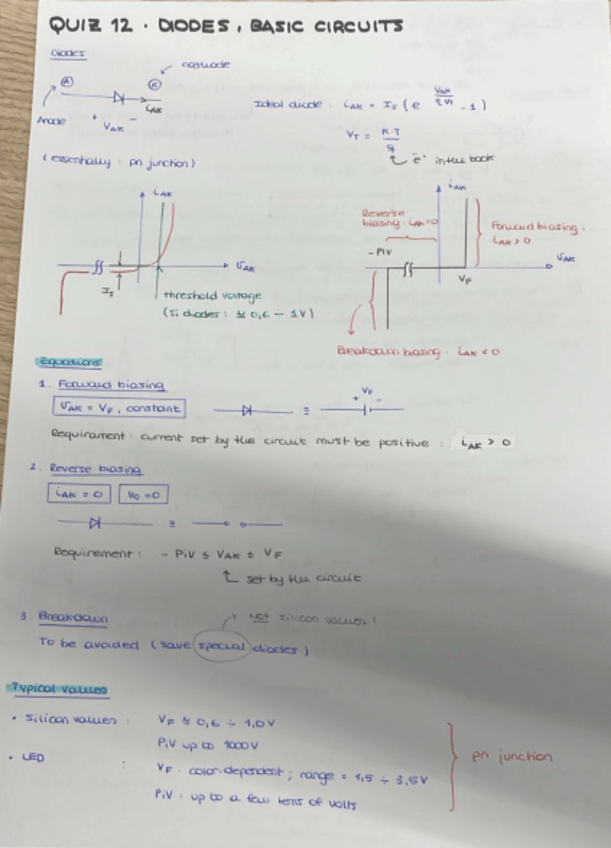 QUIZ 12 . DIODES, BASIC CIRCUITS
Diodes
cathode
A
K
Anode
+ VAK -
iAK
Ideal diode : iAK = IS (e^(VAK/ηVT) - 1)
VT = K.T/q
"e" in the book
(essentially : pn junction)
iAK
υAK
IS
threshold voltage
(Si diodes : ≅ 0,6 ÷ 1V)
iAK
Reverse biasing : iAK = 0
Forward biasing : iAK > 0
- PiV
VF
υAK
Breakdown biasing . iAK < 0
Equations
1. Forward biasing
υAK = VF, constant
≡
+ VF -
Requirament : current set by the circuit must be positive : iAK > 0
2. Reverse biasing
iAK = 0
VO = 0
≡
Requirement : - PiV ≤ VAK ≤ VF
set by the circuit
3. Breakdown
NOT silicon values!
To be avoided (save special diodes)
Typical values
• Silicon values : VF ≅ 0,6 ÷ 1,0V
PiV up to 1000V
• LED : VF . color-dependent ; range = 1,5 ÷ 3,5V
PiV . up to a few tens of volts
pn junction